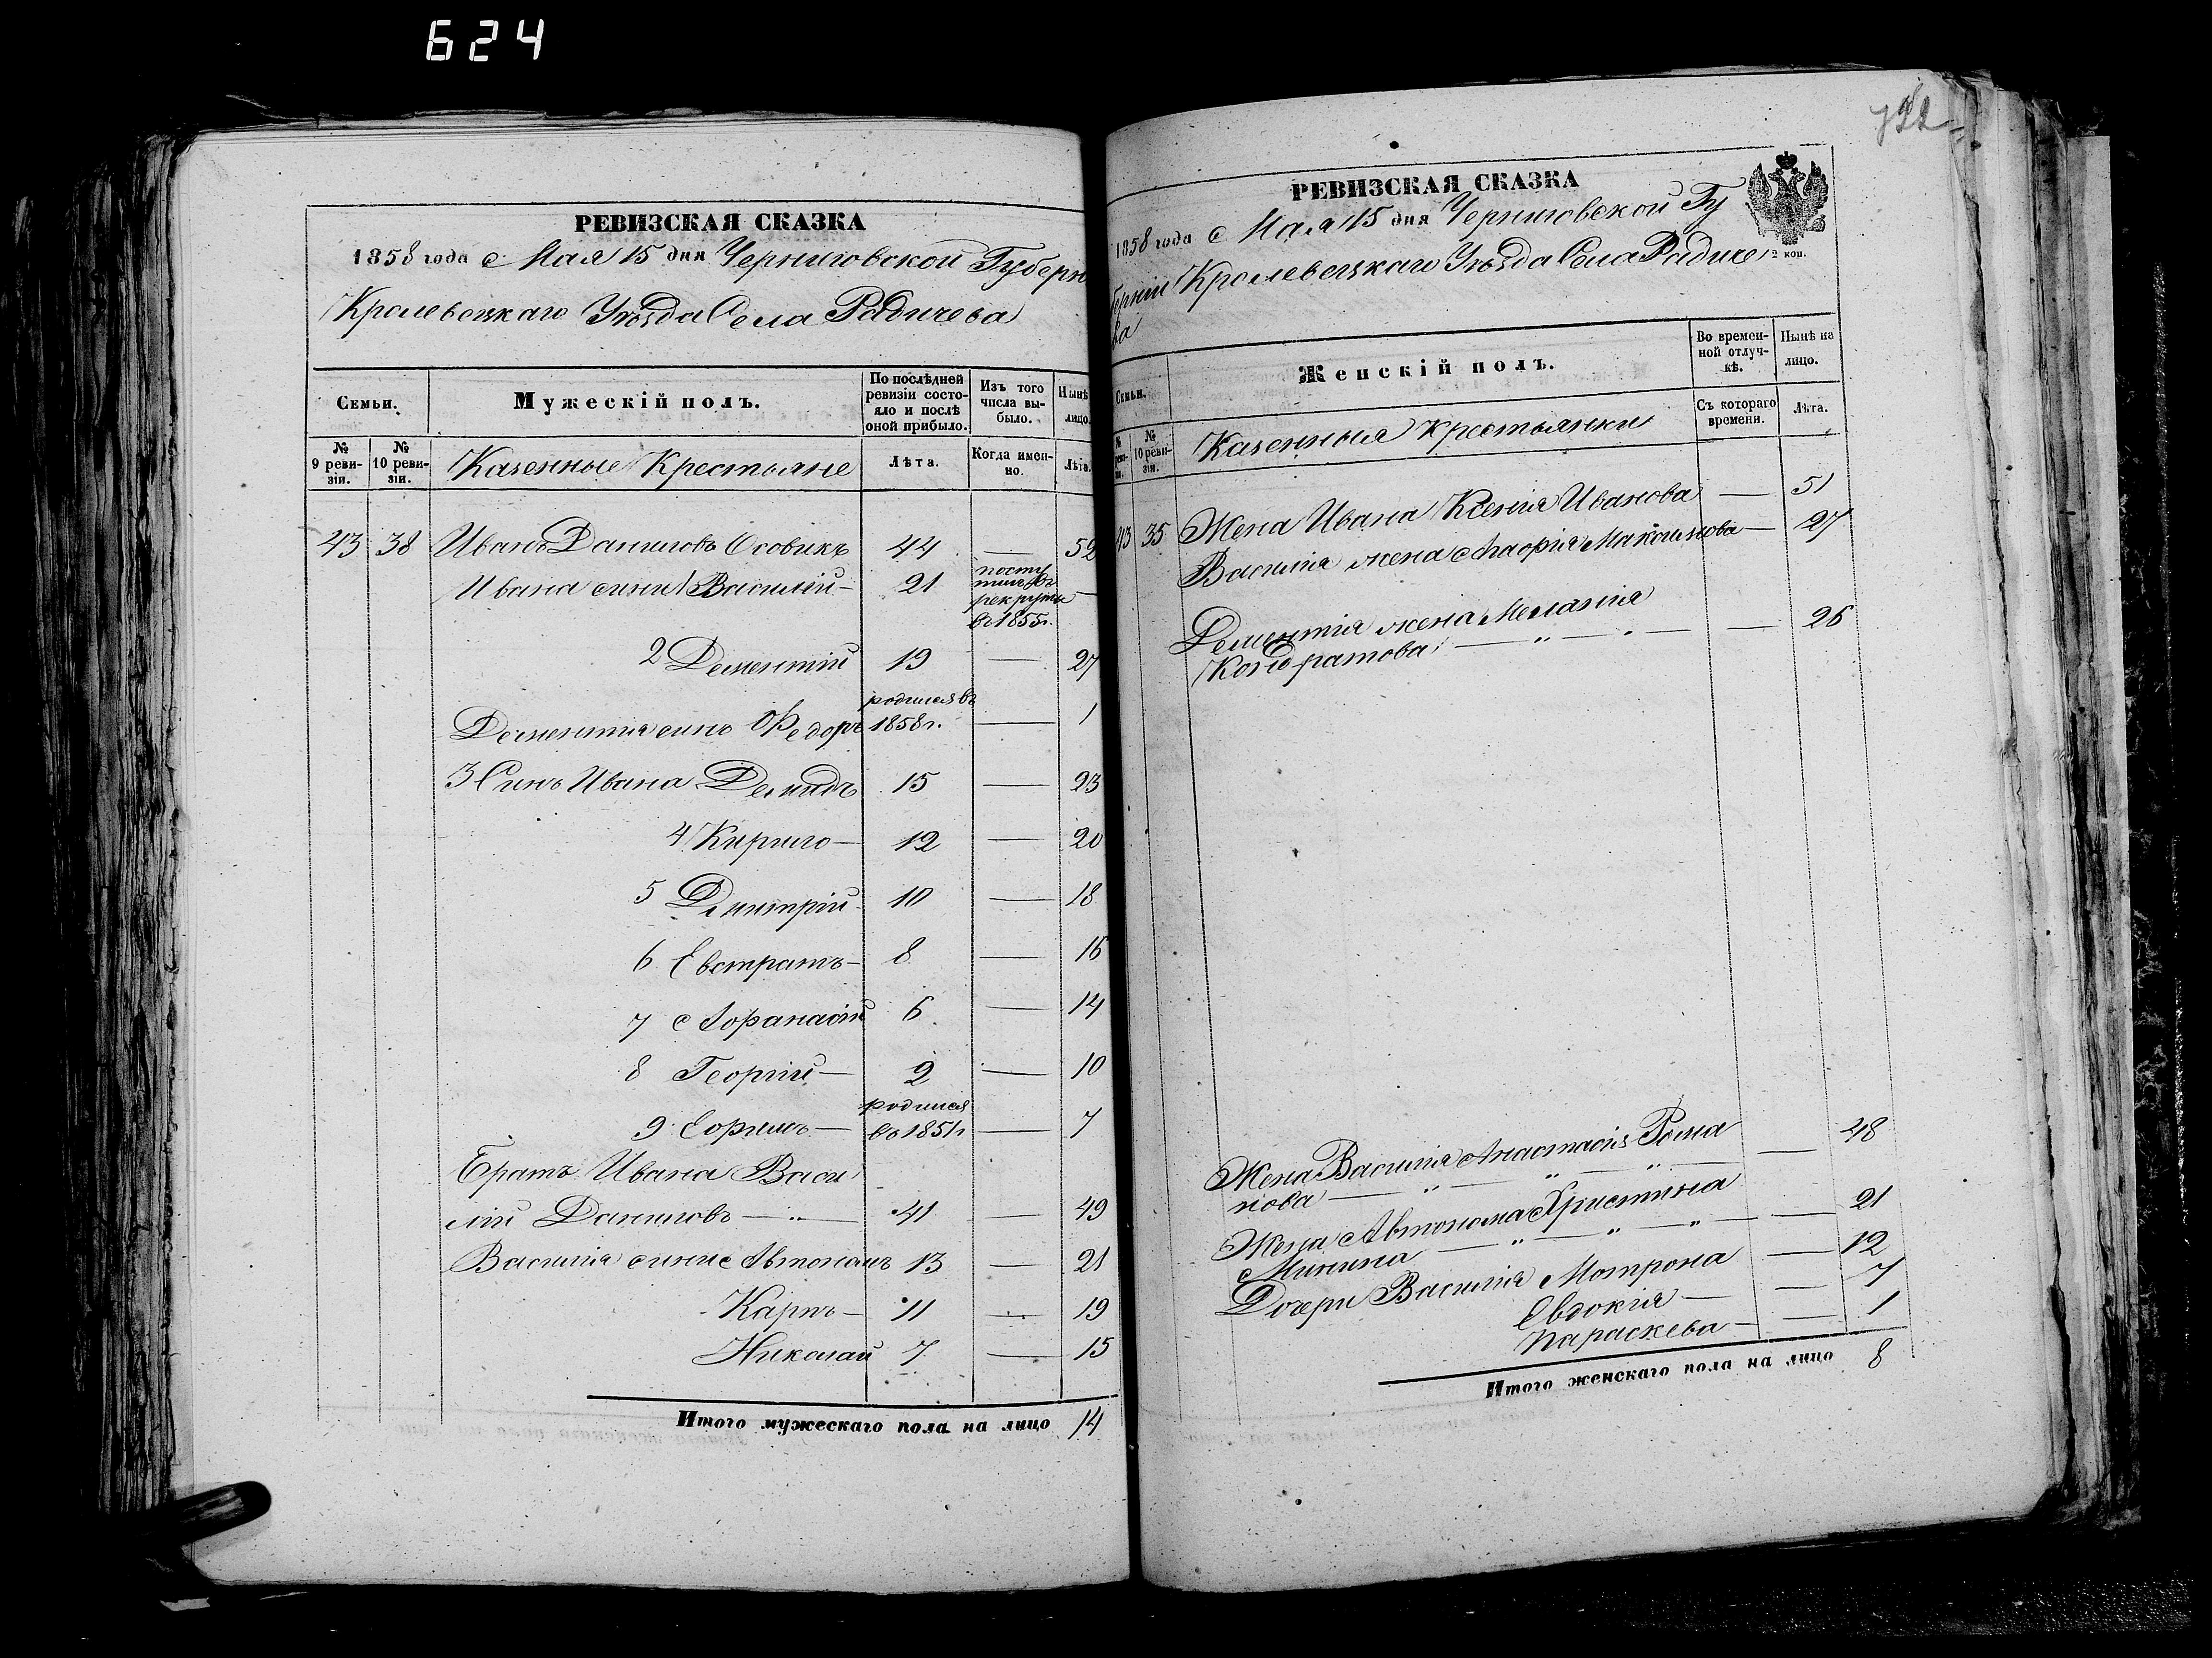 624
РЕВИЗСКАЯ СКАЗКА
1858 года с Мая 15 дня Черниговской Губерн
Кролевецкаго Уѣзда Села Радичева
Семьи.
Мужескій полъ.
По послѣдней ревизіи состояло и послѣ оной прибыло.
Изъ того числа выбыло.
Нынѣ лицо.
№ 9 ревизіи.
№ 10 ревизіи.
Казенные Крестьяне
Лѣта.
Когда именно.
Лѣта.
43 38 Иванъ Даниловъ Осовикъ 44 — 52
Ивана сыны 1 Василій — 21 поступилъ въ рекруты въ 1855г. —
2 Дементій 19 — 27
Дементія сынъ Федоръ родился въ 1858г. — 1
3 Сынъ Ивана Демидъ 15 — 23
4 Кирило — 12 — 20
5 Дмитрій 10 — 18
6 Евстратъ — 8 — 16
7 Афанасій 6 — 14
8 Георгій — 2 — 10
9 Ефимъ — родился въ 1851г — 7
Братъ Ивана Васи
лій Даниловъ — " — 41 — 49
Василія сыны Автономъ 13 — 21
Карпъ — 11 — 19
Николай 7 — 15
Итого мужескаго пола на лицо 14
722
РЕВИЗСКАЯ СКАЗКА
1858 года с Мая 15 дня Черниговской Гу
берніи Кролевецкаго Уѣзда Села Радиче
ва
2 коп.
Семьи.
Женскій полъ.
Во временной отлучкѣ.
Нынѣ на лицо.
№ реви- и.
№ 10 ревизіи.
Казенныя Крестьянки
Съ котораго времени.
Лѣта.
43 35 Жена Ивана Ксенія Иванова — 51
Василія жена Марфа Максимова — 27
Дементія жена Меланія
Кондратова — " — " — — 26
Жена Василія Анастасія Рома
нова — " — " — " — — 48
Жена Автонома Христина
Минина — " — " — " — — 21
Дочери Василія Мотрона — 12
Евдокія — — 7
Параскева — — 1
Итого женскаго пола на лицо 8